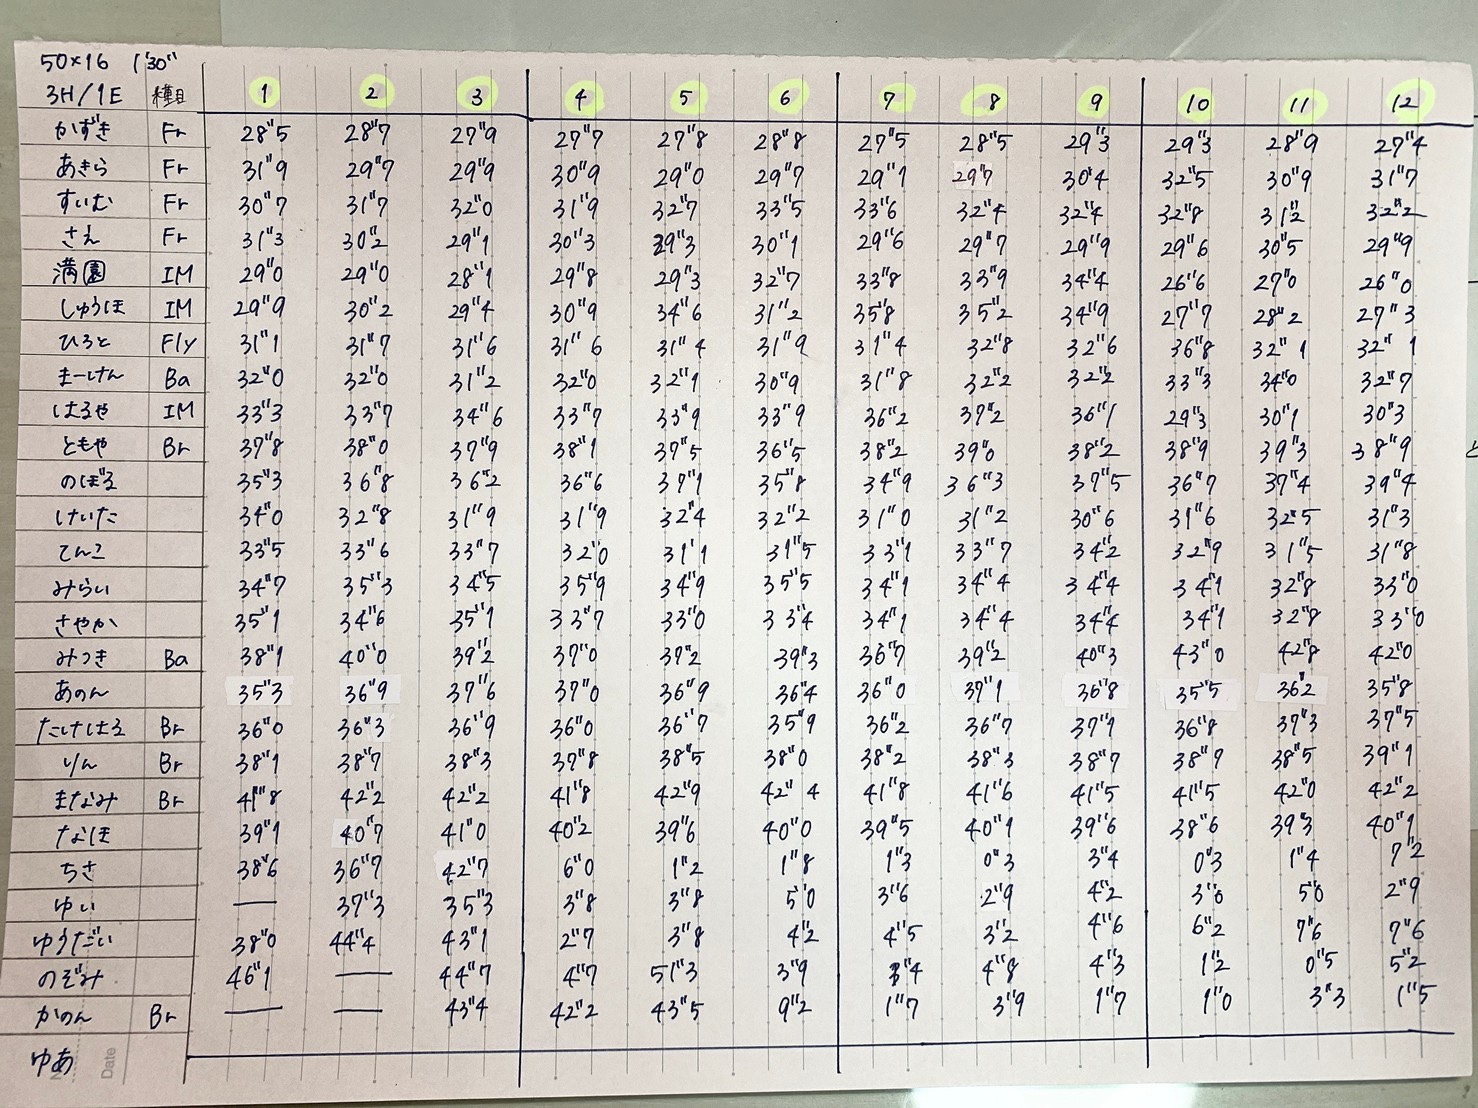 50×16 1'30"
3H/1E 種目 1 2 3 4 5 6 7 8 9 10 11 12
かずき Fr 28"5 28"7 27"9 27"7 27"8 28"8 27"5 28"5 29"3 29"3 28"9 27"4
あきら Fr 31"9 29"7 29"9 30"9 29"0 29"7 29"1 29"7 30"4 32"5 30"9 31"7
すいむ Fr 30"7 31"7 32"0 31"9 32"7 33"5 33"6 32"4 32"4 32"8 31"2 32"2
さえ Fr 31"3 30"2 29"1 30"3 29"3 30"1 29"6 29"7 29"9 29"6 30"5 29"9
溝園 IM 29"0 29"0 28"1 29"8 29"3 32"7 33"8 33"9 34"4 26"6 27"0 26"0
しゅうほ IM 29"9 30"2 29"4 30"9 34"6 31"2 35"8 35"2 34"9 27"7 28"2 27"3
ひろと Fly 31"1 31"7 31"6 31"6 31"4 31"9 31"4 32"8 32"6 36"8 32"1 32"1
まーけん Ba 32"0 32"0 31"2 32"0 32"1 30"9 31"8 32"2 32"2 33"3 34"0 32"7
はるや IM 33"3 33"7 34"6 33"7 33"9 33"9 36"2 37"2 36"1 29"3 30"1 30"3
ともや Br 37"8 38"0 37"9 38"1 37"5 36"5 38"2 39"0 38"2 38"9 39"3 38"9
のぼる 35"3 36"8 36"2 36"6 37"1 35"8 34"9 36"3 37"5 36"7 37"4 39"4
けいた 34"0 32"8 31"9 31"9 32"4 32"2 31"0 31"2 30"6 31"6 32"5 31"3
てんこ 33"5 33"6 33"7 32"0 31"1 31"5 33"1 33"7 34"2 32"9 31"5 31"8
みらい 34"7 35"3 34"5 35"9 34"9 35"5 34"1 34"4 34"4 34"1 32"8 33"0
さやか 35"1 34"6 35"1 33"7 33"0 33"4 34"1 34"4 34"4 34"1 32"8 33"0
みつき Ba 38"1 40"0 39"2 37"0 37"2 39"3 36"7 39"2 40"3 43"0 42"8 42"0
あのん 35"3 36"9 37"6 37"0 36"9 36"4 36"0 37"1 36"8 35"5 36"2 35"8
たけはる Br 36"0 36"3 36"9 36"0 36"7 35"9 36"2 36"7 37"1 36"8 37"3 37"5
りん Br 38"1 38"7 38"3 37"8 38"5 38"0 38"2 38"3 38"7 38"7 38"5 39"1
まなみ Br 41"8 42"2 42"2 41"8 42"9 42"4 41"8 41"6 41"5 41"5 42"0 42"2
なほ 39"1 40"7 41"0 40"2 39"6 40"0 39"5 40"1 39"6 38"6 39"3 40"1
ちさ 38"6 36"7 42"7 6"0 1"2 1"8 1"3 0"3 3"4 0"3 1"4 7"2
ゆい — 37"3 35"3 3"8 3"8 5"0 3"6 2"9 4"2 3"0 5"0 2"9
ゆうだい 38"0 44"4 43"1 2"7 3"8 4"2 4"5 3"2 4"6 6"2 7"6 7"6
のぞみ 46"1 — 44"7 4"7 51"3 3"9 4"8 4"3 1"2 0"5 5"2
かのん Br — — 43"4 42"2 43"5 9"2 1"7 3"9 1"7 1"0 3"3 1"5
ゆあ
Date